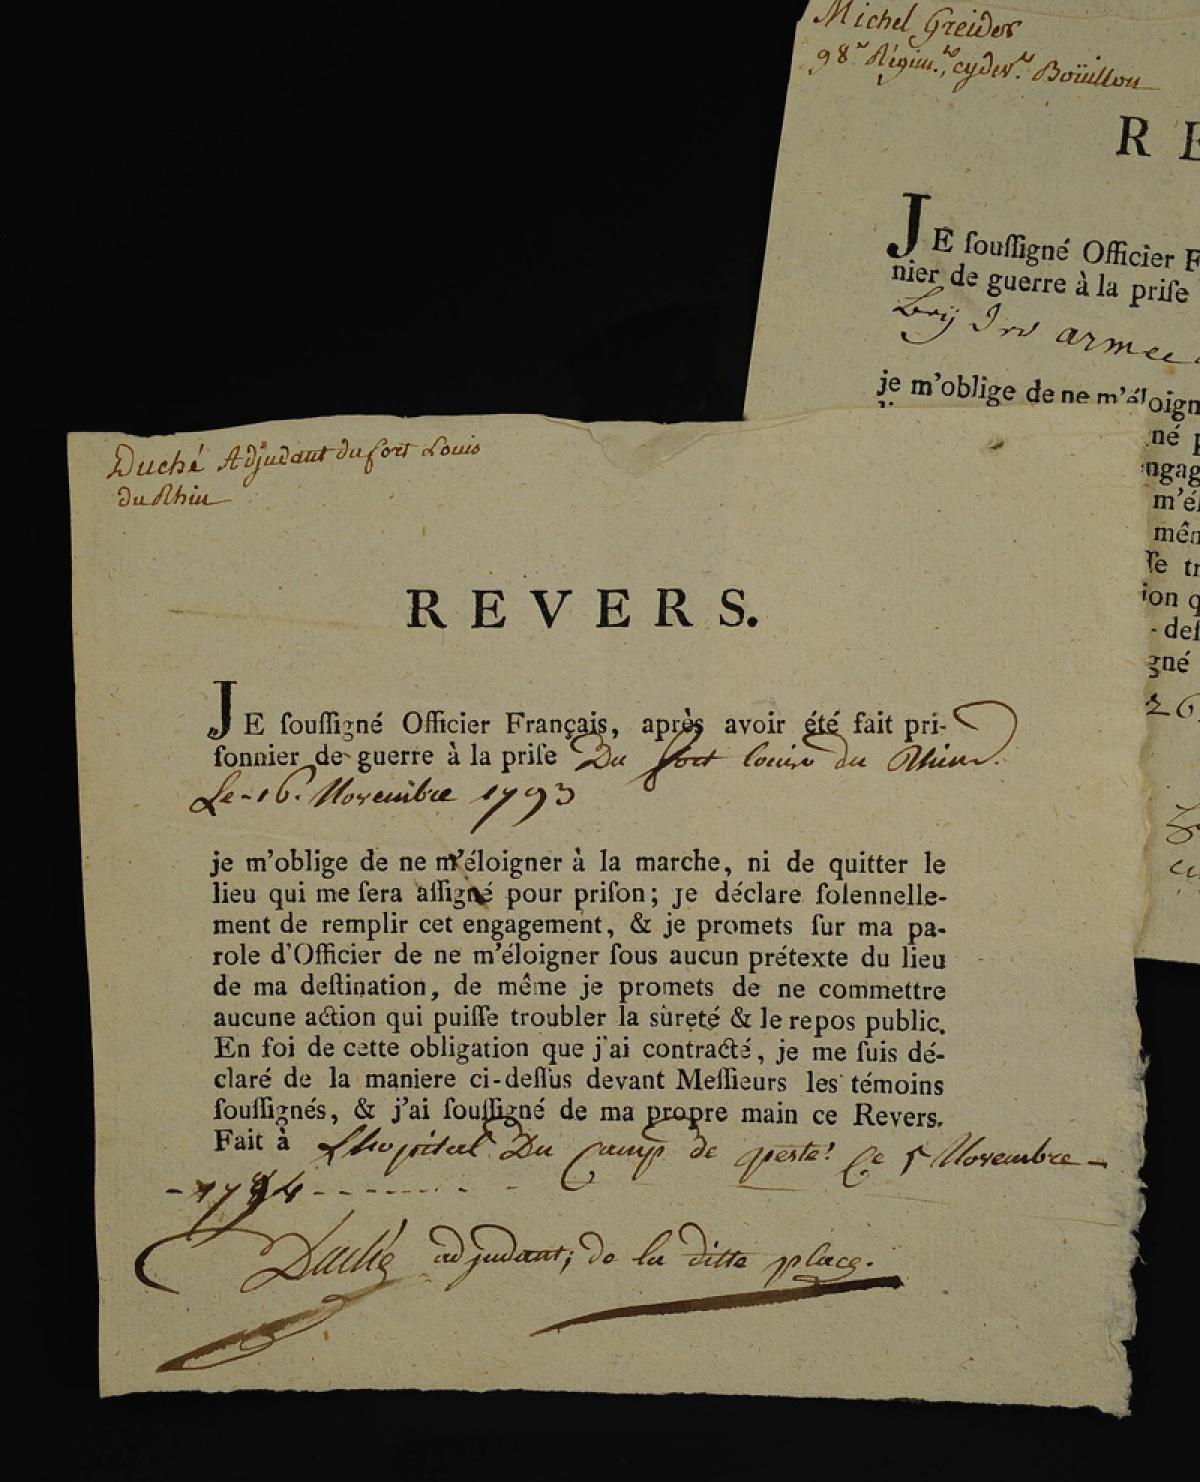 Michel Greider
98e Régim.t, cydev.t Boüillon
R E
JE souſſigné Officier F
nier de guerre à la priſe
armee
je m'oblige de ne m'éloign
né p
ngag
m'él
mêm
ſſe tr
ion q
-deſ
gné
26
Duché Adjudant du fort Louis
du Rhin
REVERS.
JE ſouſſigné Officier Français, après avoir été fait pri-
ſonnier de guerre à la priſe Du fort louis du Rhin.
Le 16. Novembre 1793
je m'oblige de ne m'éloigner à la marche, ni de quitter le
lieu qui me ſera aſſigné pour priſon; je déclare ſolennelle-
ment de remplir cet engagement, & je promets ſur ma pa-
role d'Officier de ne m'éloigner ſous aucun prétexte du lieu
de ma deſtination, de même je promets de ne commettre
aucune action qui puiſſe troubler la sûreté & le repos public.
En foi de cette obligation que j'ai contracté, je me ſuis dé-
claré de la maniere ci-deſſus devant Meſſieurs les témoins
ſouſſignés, & j'ai ſouſſigné de ma propre main ce Revers.
Fait à Lhopital Du Camp de peste! Ce 5 Novembre -
- 1794 - - - - - -
Duché adjudant; de la ditte place.